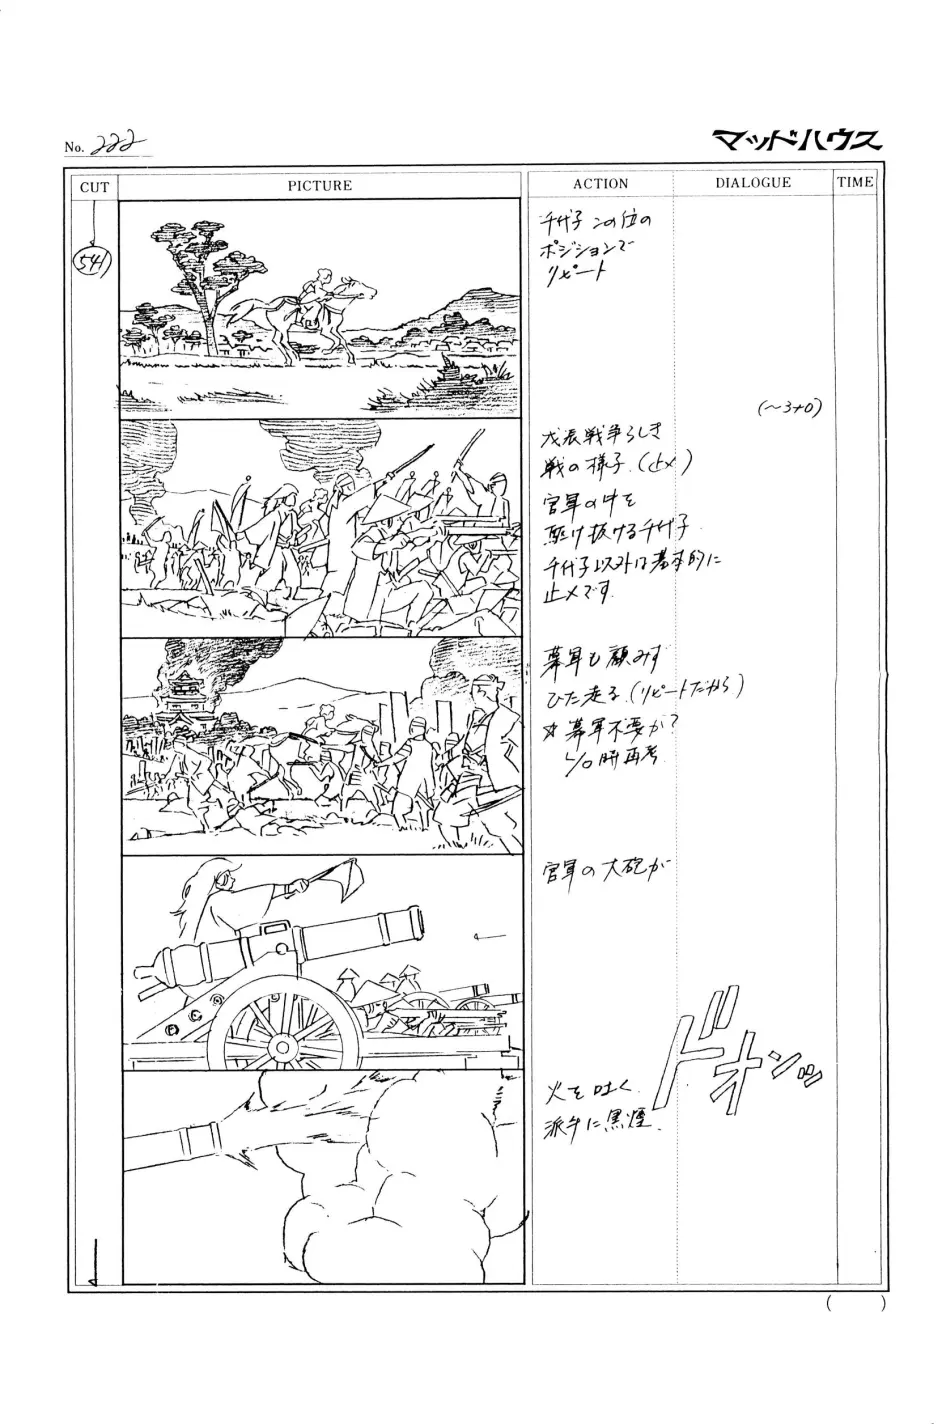 No. 222
マッドハウス
CUT
PICTURE
ACTION
DIALOGUE
TIME
541
千代子 この位の
ポジションで
リピート
(〜3+0)
戊辰戦争らしき
戦の様子.(止メ)
官軍の中を
駆け抜ける千代子.
千代子以外は基本的に
止メです.
幕軍も顧みず
ひた走る.(リピートだから)
☆幕軍不要か?
再考.
官軍の大砲が
火を吐く.
派手に黒煙.
ドオンッ
( )